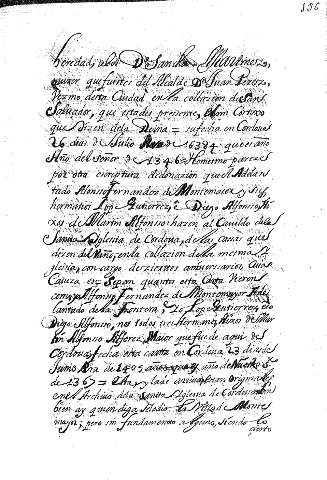 136
heredad, sobre Dª Sancha Martinez,
muxer que fuisteis del Alcalde Dn Juan Perez,
Vezino desta Ciudad en la collacion de San
Salvador, que estades presente, el Cortixo
que dizen dela Reyna = su fecha en Cordoua
26 dias de Julio Era de 1384 que es año
Año del Señor de 1346 = Lo mesmo pareze
por otra escriptura de donacion que el Adelan
tado Alonso Fernandez de Montemaior y sus
hermanos Lope Gutierrez, e Diego Alfonso hi
xos de Martin Alfonso hazen al Cavildo dela
Santa Iglesia de Cordova, de las casas que
dizen del Baño, en la collazion de la mesma Y
glesia, con cargo de ziertos aniversarios, Cuia
Caueza es = Sepan quantos esta Carta Vieren
como yo Alfonso Fernandez de Montemayor Ade
lantado de la frontera, e Yo Lope Gutierrez, e Yo
Diego Alfonso, nos todos tres Hermanos, hixos de Mar
tin Alfonso Alferez Maior que fue de aqui de
Cordova, fecha esta carta en Cordova 23 dias de
Junio Era de 1405 año de Nuestro S.
de 1367 =
en el Archivo dela Santa Iglesia de Cordova
bien ay quien diga
maior; pero sin fundamento alguno, siendo lo
cierto